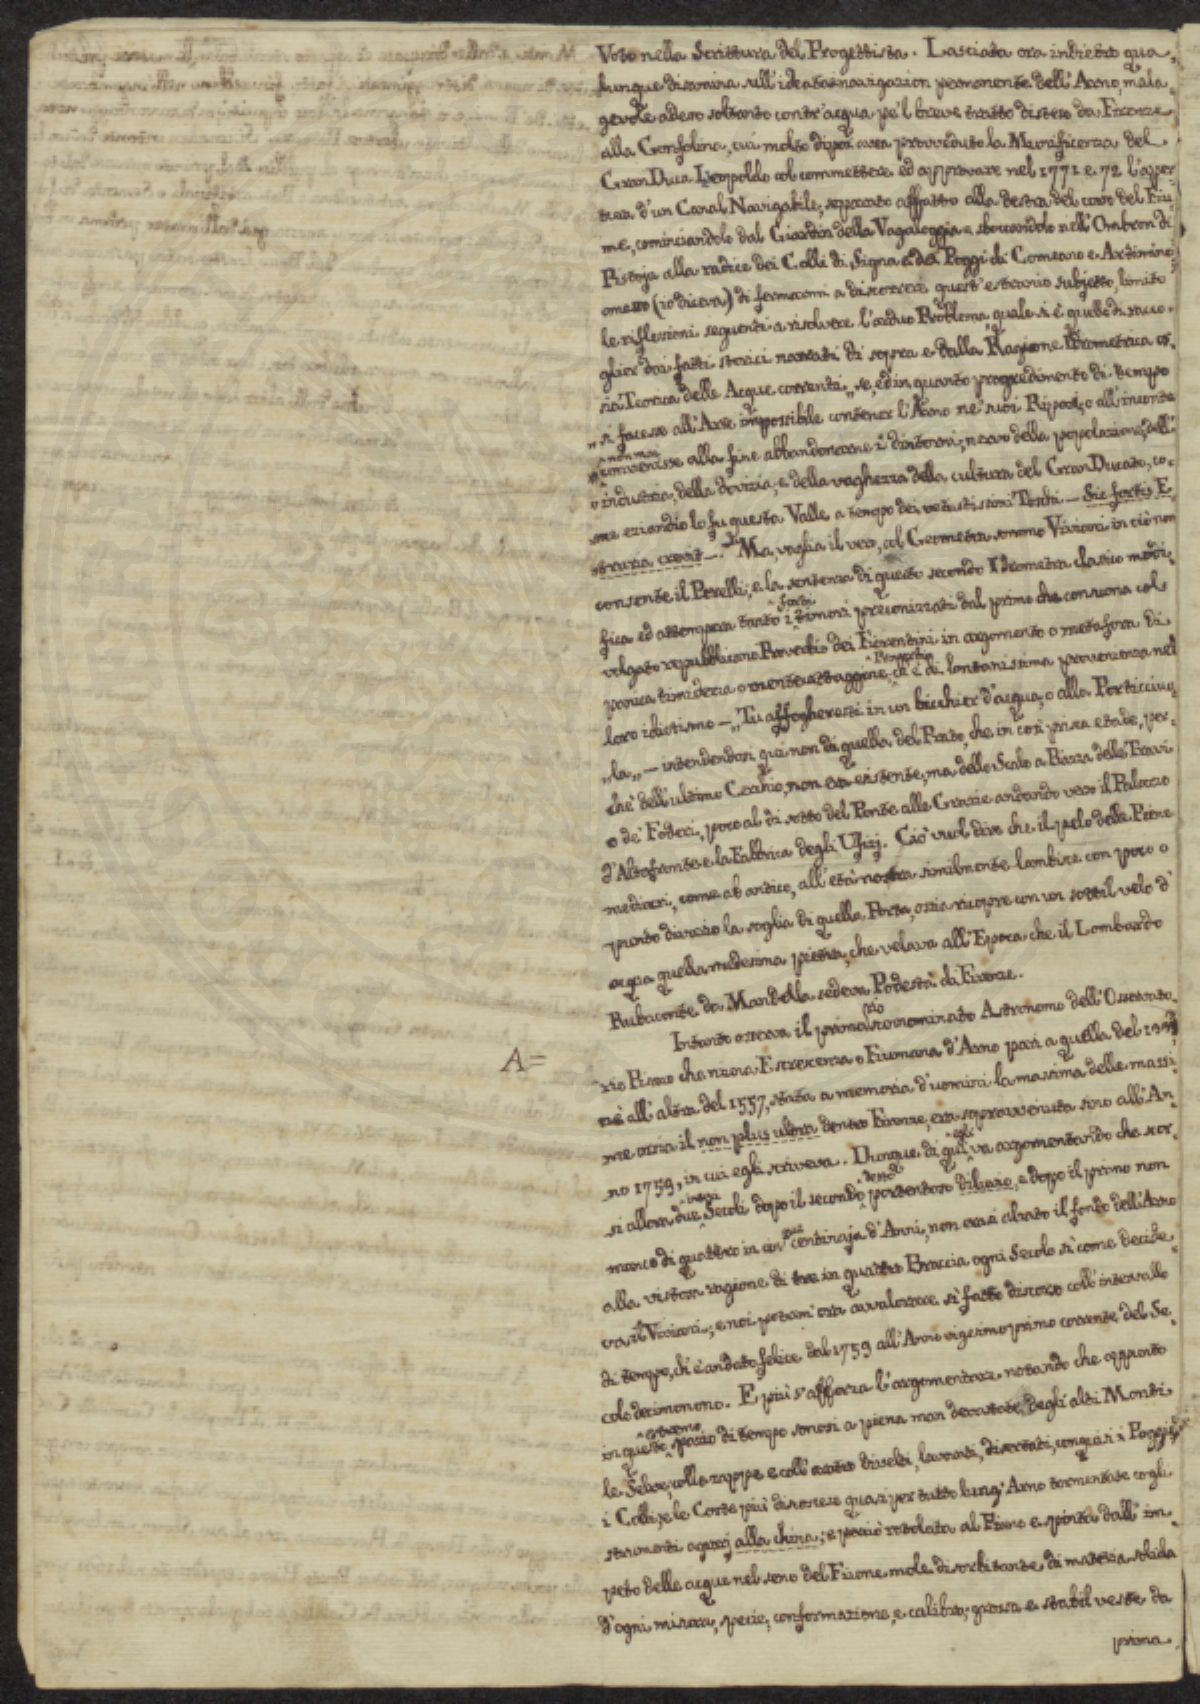 Voto nella Scrittura del Progettista. Lasciata ora indietro qua-
lunque disamina sull'ideata navigazion permanente dell'Arno, mala-
gevole adesso soltanto contr'acqua pe'l breve tratto disteso da Firenze
alla Gonfolina, cui molto dipoi avea provveduto la Munificenza del
GranDuca Leopoldo col commettere ed approvare nel 1771 e 72 l'aper-
tura d'un Canal Navigabile, separato affatto alla destra del corso del Fiu-
me, cominciandolo dal Giardin della Vagaloggia e sboccandolo nell'Ombron di
Pistoja alla radice dei Colli di Signa e dei Poggi di Comeano e Artimino
ometto (io diceva) di fermarmi a discorrere quest'estranio subjetto, limito
le riflessioni seguenti a risolvere l'arduo Problema, quale si è quello di racco-
glier dai fatti storici narrati di sopra e dalla Ragione Idrometrica os-
sia Teorica delle Acque correnti, „se, ed in quanto progredimento di tempo
„si facesse all'Arte impossibile contener l'Arno ne' suoi Ripari, o all'incontro
„non mai convenisse alla fine abbandonarne i dintorni, nervo della popolazione, dell'
„industria, della dovizia, e della vaghezza della cultura del GranDucato, co-
me eziandio lo fu questa Valle a tempo dei vetustissimi Toschi — Sic fortis E-
truria crevit —. Ma, vaglia il vero, col Geometra sommo Viviani in ciò non
consente il Perelli; e la sentenza di questo secondo Idrometra classico modi-
fica ed attempera tanto i forti timori preconizzati dal primo che consuona col
volgato repubblicano Proverbio dei Fiorentini in argomento o metafora di
panca timidezza o mentecattaggine, ch'è di lontanissima provenienza nel
loro idiotismo — „Tu affogheresti in un bicchier d'acqua, o alla Porticciuo-
„la„ — intendendosi qui non di quella del Prato, che in così prisca etade, per-
chè dell'ultimo Cerchio, non era esistente, ma dello Scalo a Piazza delle Travi
o de' Foderi, poco al di sotto del Ponte alle Grazie andando verso il Palazzo
d'Altafronte e la Fabbrica degli Ufizj. Ciò vuol dire che il pelo delle Piene
mediocri, come ab antico, all'età nostra similmente lambire con poco o
punto divario la soglia di quella Porta, ossia ricopre con un sottil velo d'
acqua quella medesima pietra, che velava all'Epoca che il Lombardo
Rubaconte da Mandella sedeva Podestà di Firenze.
Intanto osserva il prima rinominato Astronomo dell'Osservato-
A=
rio Pisano che niuna Escrescenza o Fiumana d'Arno pari a quella del 1333
nè all'altra del 1557, stata a memoria d'uomini la massima delle massi-
me ossia il non plus ultra dentro Firenze, era sopravvenuta sino all'An-
no 1759, in cui egli scriveva. Dunque di quì egli va argomentando che scor-
si allora due interi Secoli dopo il secondo portentoso diluvio, e dopo il primo non
manco di quattro in cinque centinaja d'Anni, non erasi alzato il fondo dell'Arno
alla vistosa ragione di tre in quattro Braccia ogni Secolo sì come decide-
va il Viviani; e noi potrem' ora avvalorare sì fatto discorso coll'intervallo
di tempo, ch'è andato felice dal 1759 all'Anno vigesimoprimo corrente del Se-
colo decimonono. E più s'afforza l'argomentare notando che appunto
in questo estremo spazio di tempo sonosi a piena man devastate degli alti Monti
le Selve, colle zappe e coll'aratro divelti, lavorati, disertati, conquisi i Poggj,
i Colli, e le Coste più discoscese quasi per tutto lungi Arno tormentate cogli
strumenti agrarj alla china; e perciò rotolata al Piano e spinta dall'im-
peto delle acque nel seno del Fiume mole disorbitante di materia solida
d'ogni misura, specie, conformazione, e calibro, grossa e stabil veste da
prima